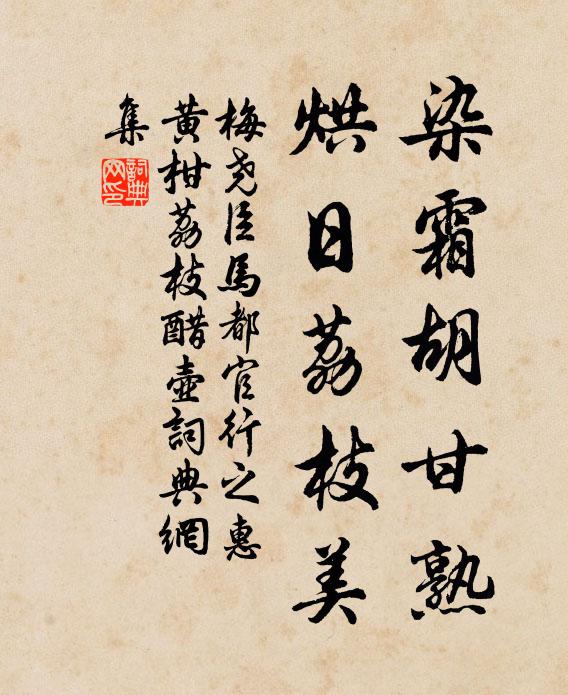 染霜胡甘熟
烘日荔枝美
梅尧臣馬都官行之惠
黄柑荔枝醋壶詞典網
集
詞典网印